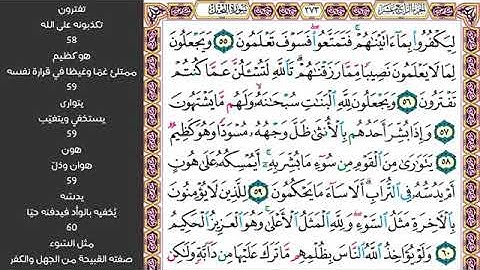 الجزء الرابع عشر
٢٧٣
سورة النحل
لِيَكْفُرُوا۟ بِمَآ ءَاتَيْنَٰهُمْ ۚ فَتَمَتَّعُوا۟ ۖ فَسَوْفَ تَعْلَمُونَ ٥٥ وَيَجْعَلُونَ
لِمَا لَا يَعْلَمُونَ نَصِيبًا مِّمَّا رَزَقْنَٰهُمْ ۗ تَٱللَّهِ لَتُسْـَٔلُنَّ عَمَّا كُنتُمْ
تَفْتَرُونَ ٥٦ وَيَجْعَلُونَ لِلَّهِ ٱلْبَنَٰتِ سُبْحَٰنَهُۥ ۙ وَلَهُم مَّا يَشْتَهُونَ
٥٧ وَإِذَا بُشِّرَ أَحَدُهُم بِٱلْأُنثَىٰ ظَلَّ وَجْهُهُۥ مُسْوَدًّا وَهُوَ كَظِيمٌ
٥٨ يَتَوَٰرَىٰ مِنَ ٱلْقَوْمِ مِن سُوٓءِ مَا بُشِّرَ بِهِۦٓ ۚ أَيُمْسِكُهُۥ عَلَىٰ هُونٍ
أَمْ يَدُسُّهُۥ فِى ٱلتُّرَابِ ۗ أَلَا سَآءَ مَا يَحْكُمُونَ ٥٩ لِلَّذِينَ لَا يُؤْمِنُونَ
بِٱلْءَاخِرَةِ مَثَلُ ٱلسَّوْءِ ۖ وَلِلَّهِ ٱلْمَثَلُ ٱلْأَعْلَىٰ ۚ وَهُوَ ٱلْعَزِيزُ ٱلْحَكِيمُ
٦٠ وَلَوْ يُؤَاخِذُ ٱللَّهُ ٱلنَّاسَ بِظُلْمِهِم مَّا تَرَكَ عَلَيْهَا مِن دَآبَّةٍ وَلَٰكِن
تفترون
تكذبونه على الله
58
هو كظيم
ممتلئ غمّا وغيظا في قرارة نفسه
59
يتوارى
يستخفي ويتغيّب
59
هون
هوان وذلّ
59
يدسّه
يُخفيه بالوأد فيدفنه حيّا
60
مثل السّوء
صفته القبيحة من الجهل والكفر